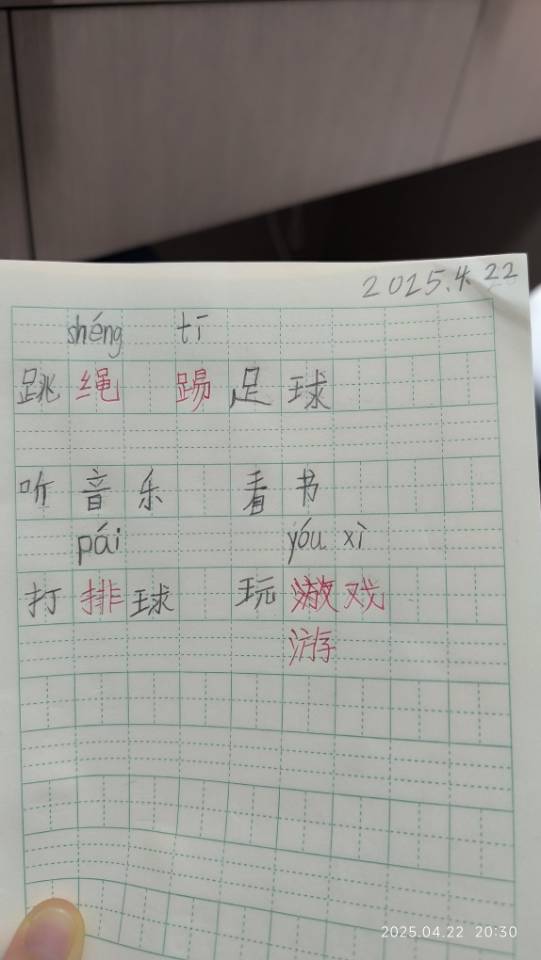 2025.4.22
shéng tī
跳绳 踢足球
听音乐 看书
pái yóu xì
打排球 玩遨戏
游
2025.04.22 20:30